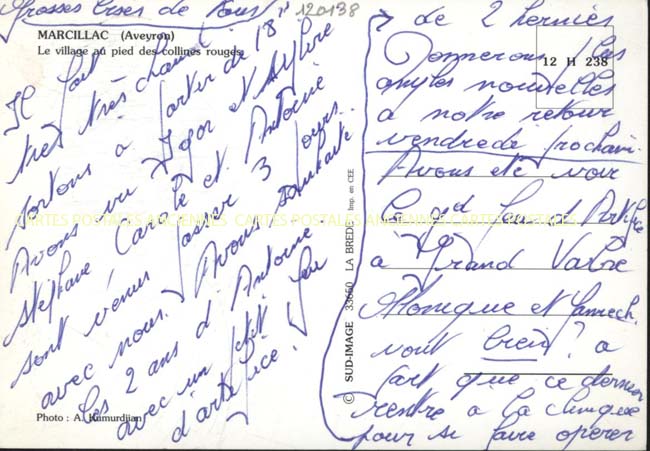 Grosses bises de nous
120138
MARCILLAC (Aveyron)
Le village au pied des collines rouges.
Il fait
très très chaud !
sortons à partir de 18 h
Avons vu Igor et
Stéphane Carole et Antoine
sont venus passer 3 jours
avec nous. Avons souhaité
les 2 ans d'Antoine
avec un petit feu
d'artifice.
Photo : A. Kumurdjian
© SUD-IMAGE 33650 LA BREDE Imp. en CEE
12 H 238
CARTES POSTALES ANCIENNES CARTES POSTALES ANCIENNES CARTES POSTALES
Monique et
vont bien ? à
part que ce dernier
rentre à la clinique
pour se faire opérer
de 2 hernies
Donnerons plus
amples nouvelles
à notre retour
vendredi prochain.
Avons été voir
à Grand